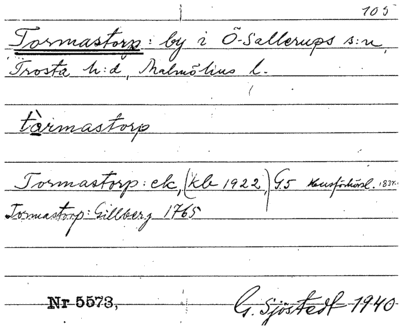 105
Tormastorp: by i Ö-Sallerups s:n,
Frosta h:d, Malmöhus l.
tòrmastorp
Tormastorp: ek, (kb 1922,) G.5 Husförhörsl. 1837.
Tormastorp: Gillberg 1765
Nr 5573,
G. Sjöstedt 1940